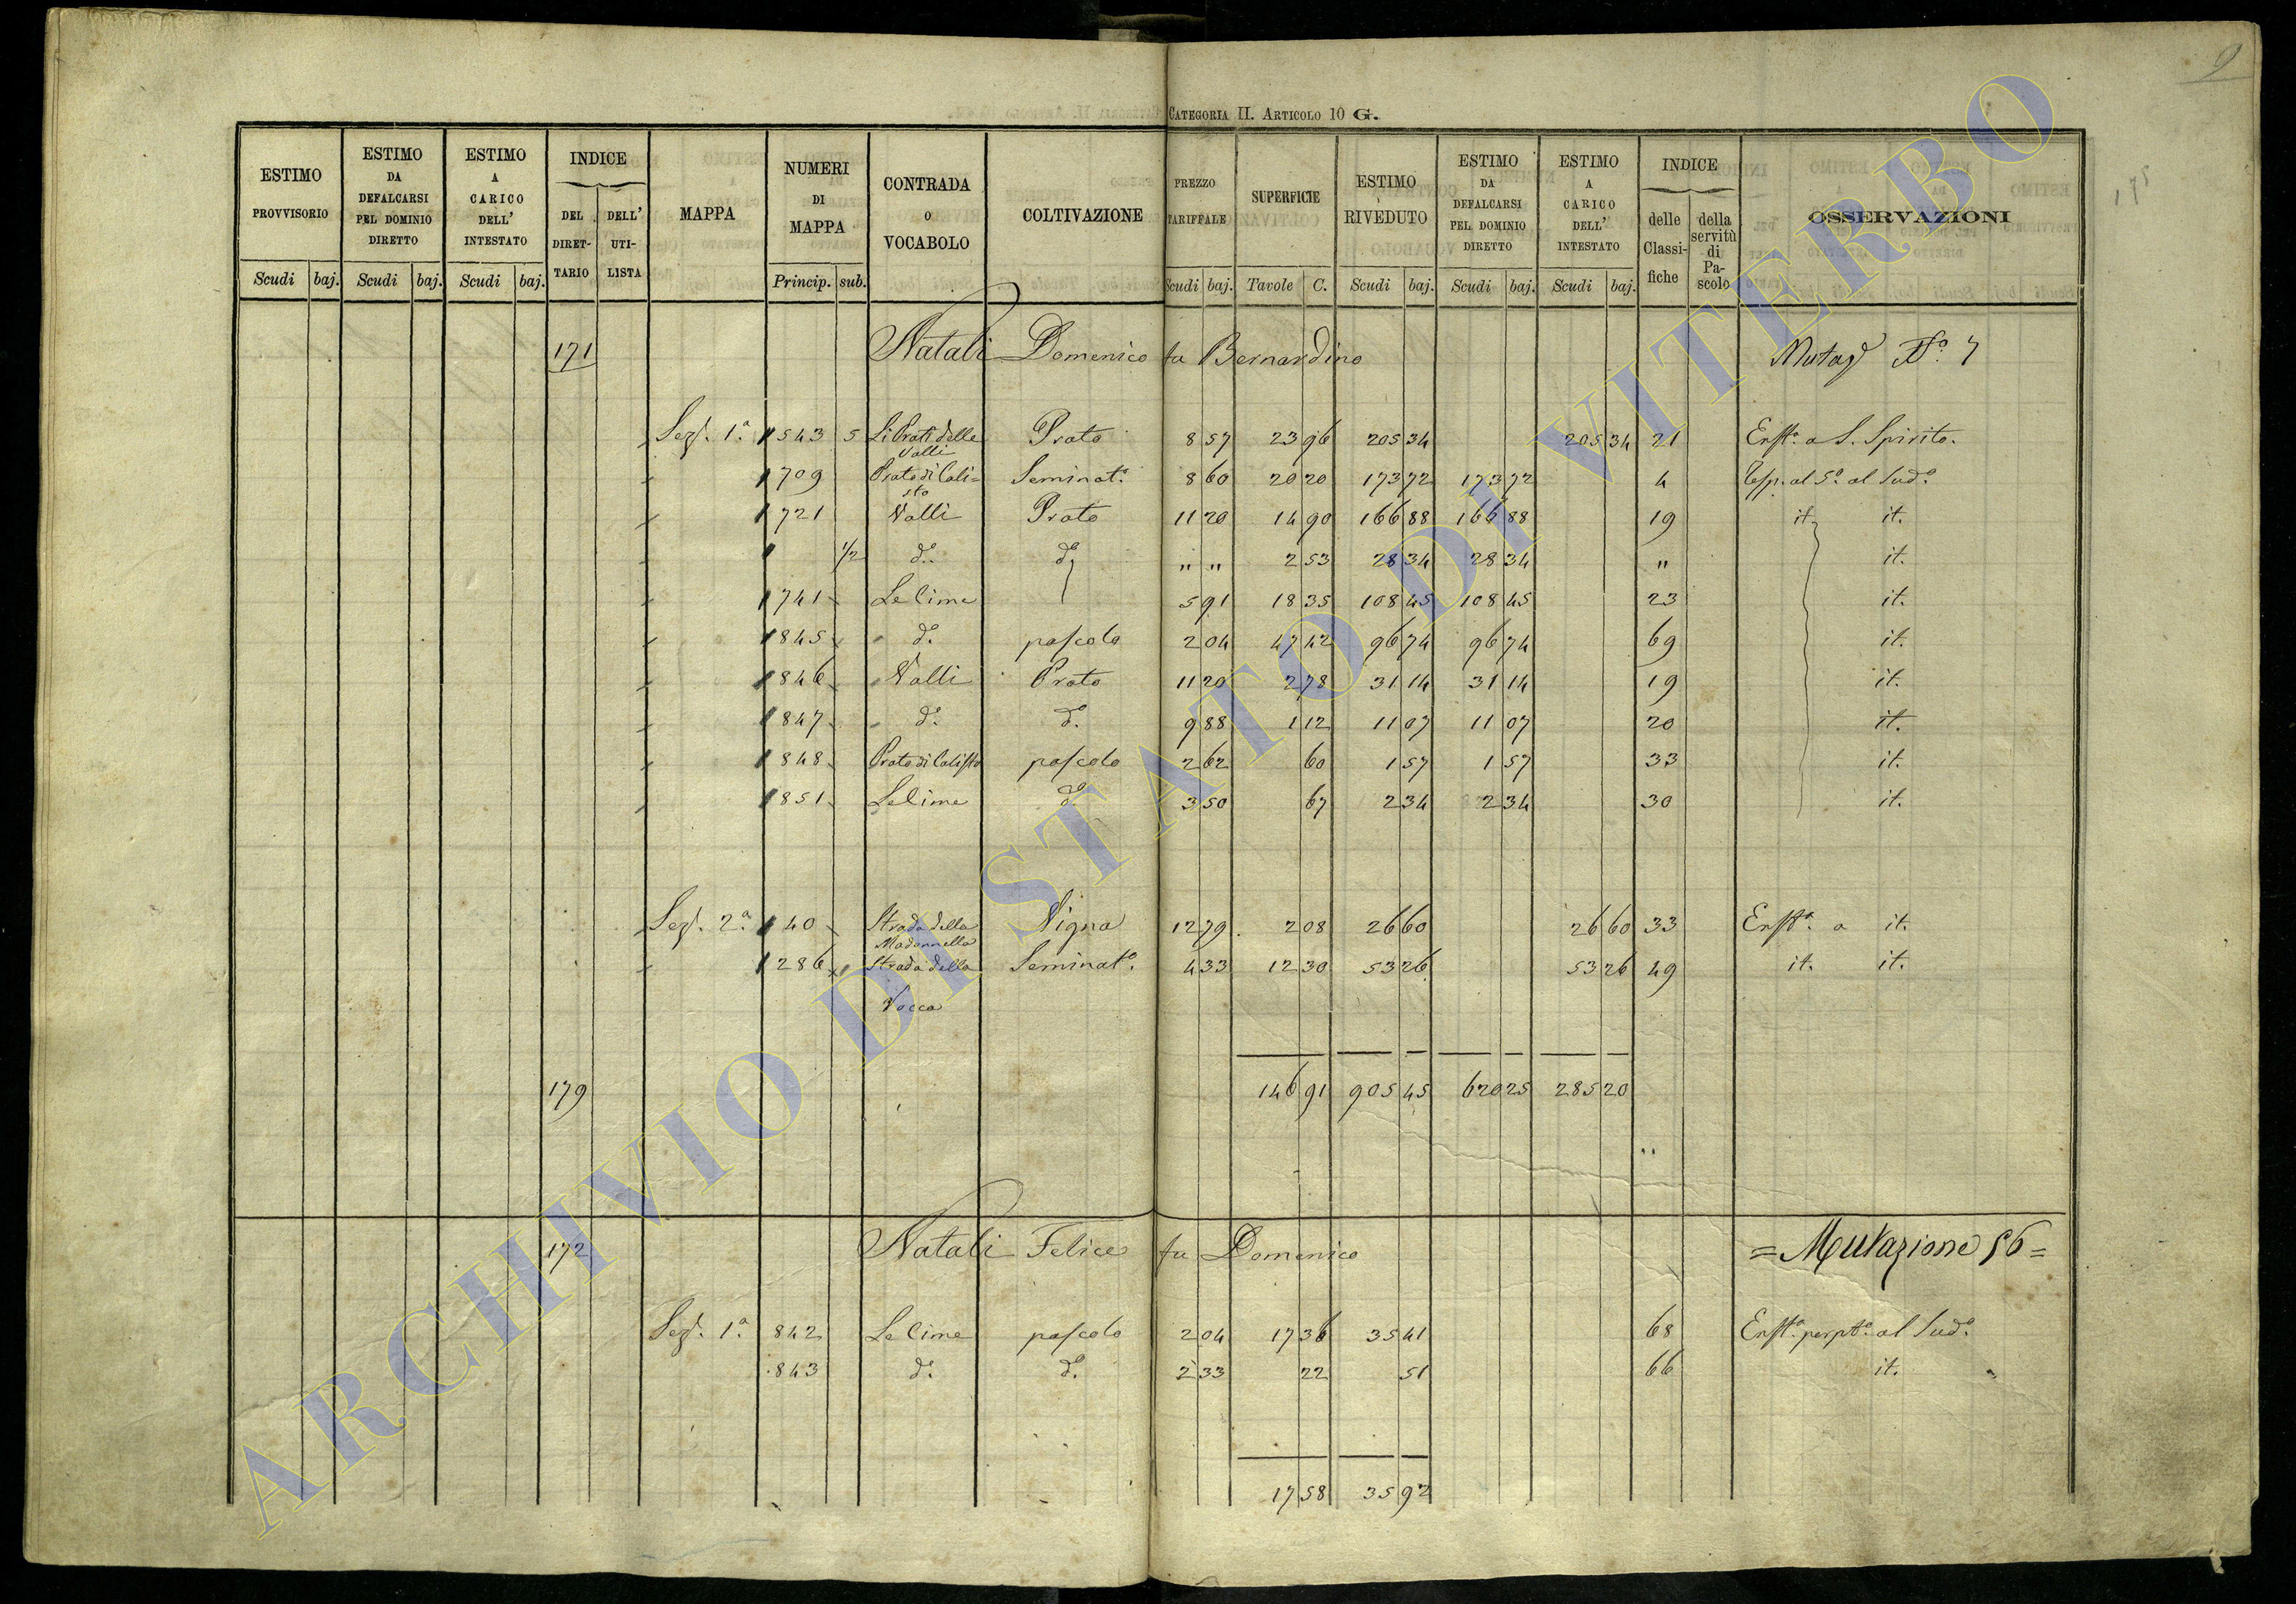 9
CATEGORIA II. ARTICOLO 10 G.
ESTIMO PROVVISORIO | ESTIMO DA DEFALCARSI PEL DOMINIO DIRETTO | ESTIMO A CARICO DELL' INTESTATO | INDICE DEL DIRETTARIO | DELL' UTILISTA | MAPPA | NUMERI DI MAPPA | CONTRADA O VOCABOLO | COLTIVAZIONE | PREZZO TARIFFALE | SUPERFICIE | ESTIMO RIVEDUTO | ESTIMO DA DEFALCARSI PEL DOMINIO DIRETTO | ESTIMO A CARICO DELL' INTESTATO | INDICE delle Classifiche | della servitù di Pascolo | OSSERVAZIONI
Scudi baj. | Scudi baj. | Scudi baj. | Princip. sub. | Scudi baj. | Tavole C. | Scudi baj. | Scudi baj. | Scudi baj.
171 Natali Domenico fu Bernardino Mutaz. N.° 7
Sez. 1.a 543 5 Li Prati delle Valli Prato 8 57 23 96 205 34 205 34 21 Enft.a a S. Spirito.
709 Prato di Calisto Seminat.o 8 60 20 20 173 72 173 72 4 Risp. al 5.o al Sud.o
721 Valli Prato 11 20 14 90 166 88 166 88 19 it. it.
1/2 d.o d.o " " 2 53 28 34 28 34 " it.
741 Le lime 5 91 18 35 108 45 108 45 23 it.
845 d.o pascolo 2 04 47 42 96 74 96 74 69 it.
846 Valli Prato 11 20 2 78 31 14 31 14 19 it.
847 d.o d.o 9 88 1 12 11 07 11 07 20 it.
848 Prato di Calisto pascolo 2 62 60 1 57 1 57 33 it.
851 Le lime d.o 3 50 67 2 34 2 34 30 it.
Sez. 2.a 40 Strada della Madonnella Vigna 12 79 2 08 26 60 26 60 33 Enft.a a it.
286 Strada della Vocca Seminat.o 4 33 12 30 53 26 53 26 49 it. it.
179 146 91 905 45 620 25 285 20
172 Natali Felice fu Domenico = Mutazione 56 =
Sez. 1.a 842 Le lime pascolo 2 04 17 36 35 41 68 Enft.a perpt.a al Sud.o
843 d.o d.o 2 33 22 51 66 it.
17 58 35 92
ARCHIVIO DI STATO DI VITERBO